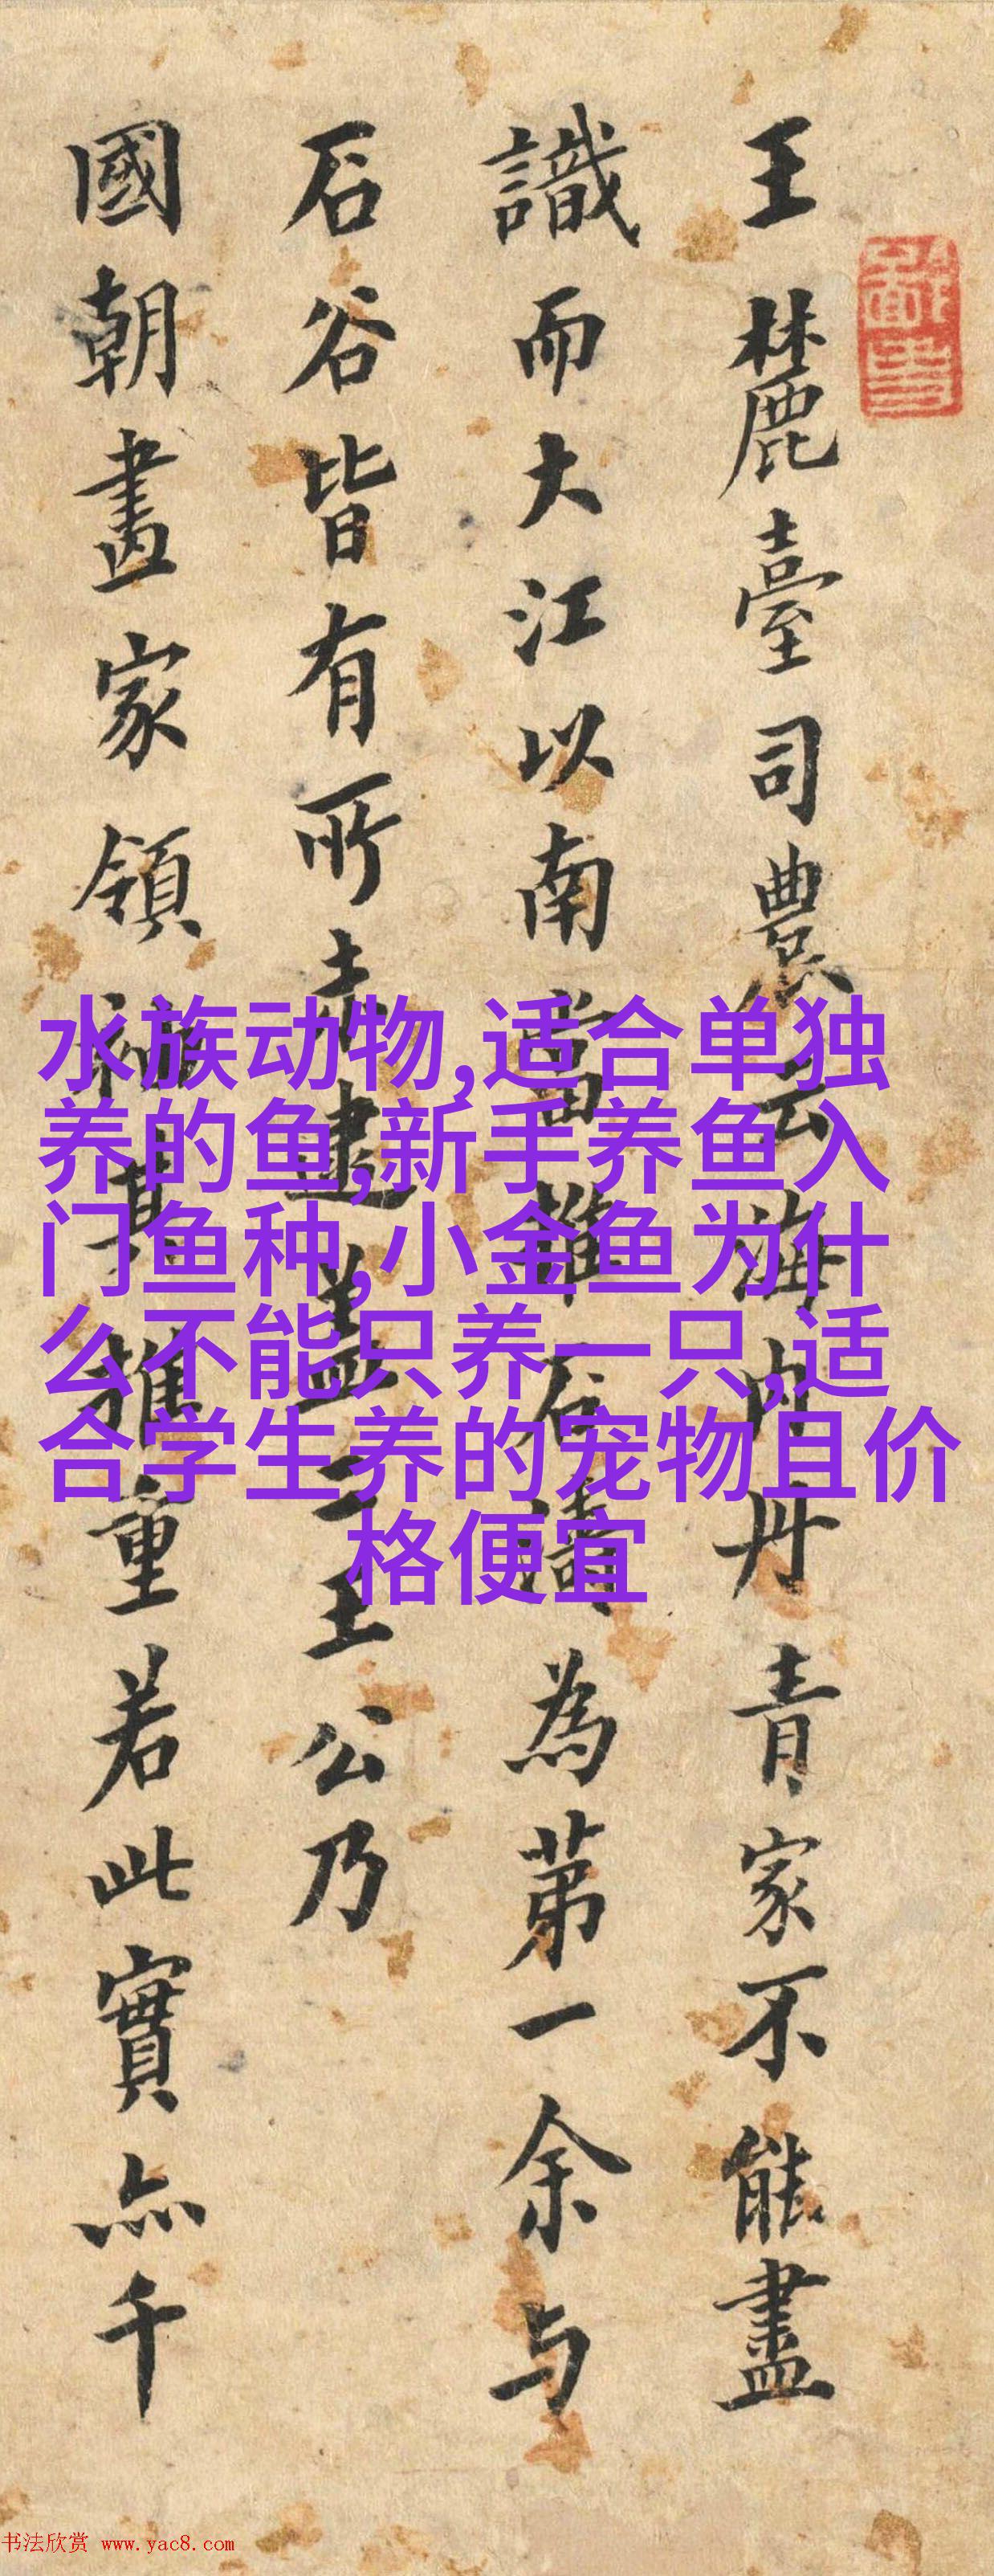 王麓臺司農云海内丹青家不能盡
識而大江以南當推石濤為第一余与
石谷皆有所未逮蓋二王公乃
國朝畫家領袖其推重若此實亦千
水族动物,适合单独
养的鱼,新手养鱼入
门鱼种,小金鱼为什
么不能只养一只,适
合学生养的宠物且价
格便宜
书法欣赏 www.yac8.com